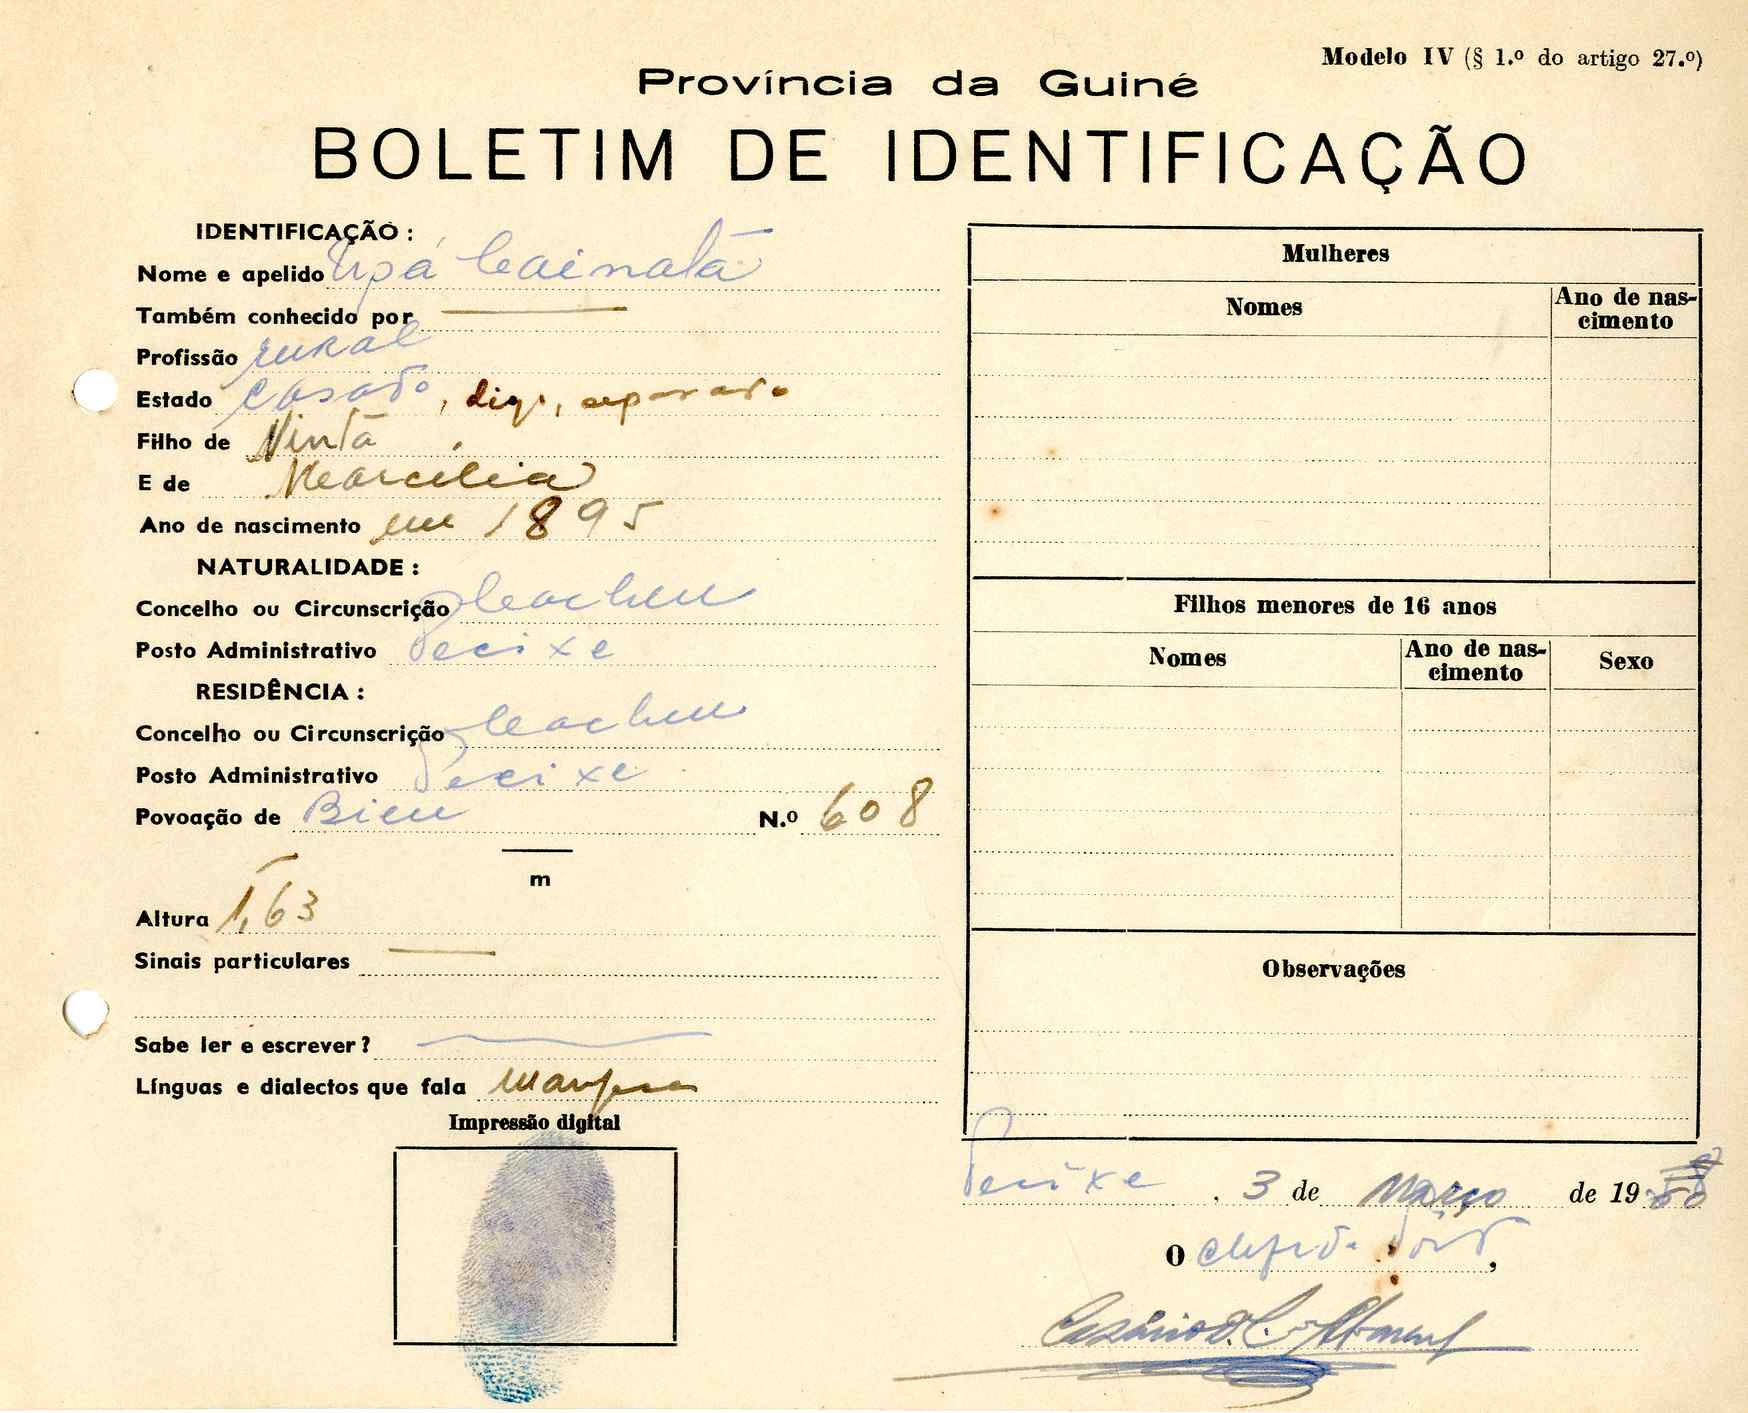 Modelo IV (§ 1.º do artigo 27.º)
Província da Guiné
BOLETIM DE IDENTIFICAÇÃO
IDENTIFICAÇÃO :
Nome e apelido Upá Caimatã
Também conhecido por
Profissão rural
Estado casado, digo, separado
Filho de Nintã
E de Marcília
Ano de nascimento em 1895
NATURALIDADE :
Concelho ou Circunscrição Cacheu
Posto Administrativo Pecixe
RESIDÊNCIA :
Concelho ou Circunscrição Cacheu
Posto Administrativo Pecixe
Povoação de Bieu N.º 608
m
Altura 1,63
Sinais particulares
Sabe ler e escrever ?
Línguas e dialectos que fala
Impressão digital
Mulheres
Nomes
Ano de nas-
cimento
Filhos menores de 16 anos
Nomes
Ano de nas-
cimento
Sexo
Observações
Pecixe, 3 de Março de 19
O chefe do Posto,